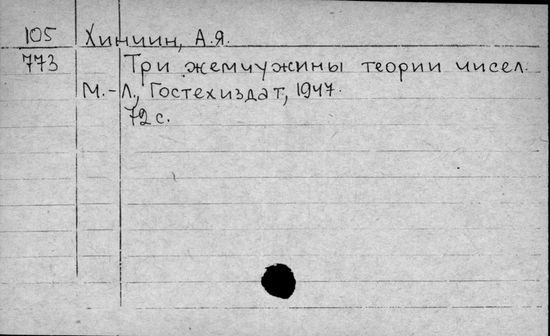 105 Хинчин, А.Я.
773 Три жемчужины теории чисел.
М.-Л., Гостехиздат, 1947.
72 с.